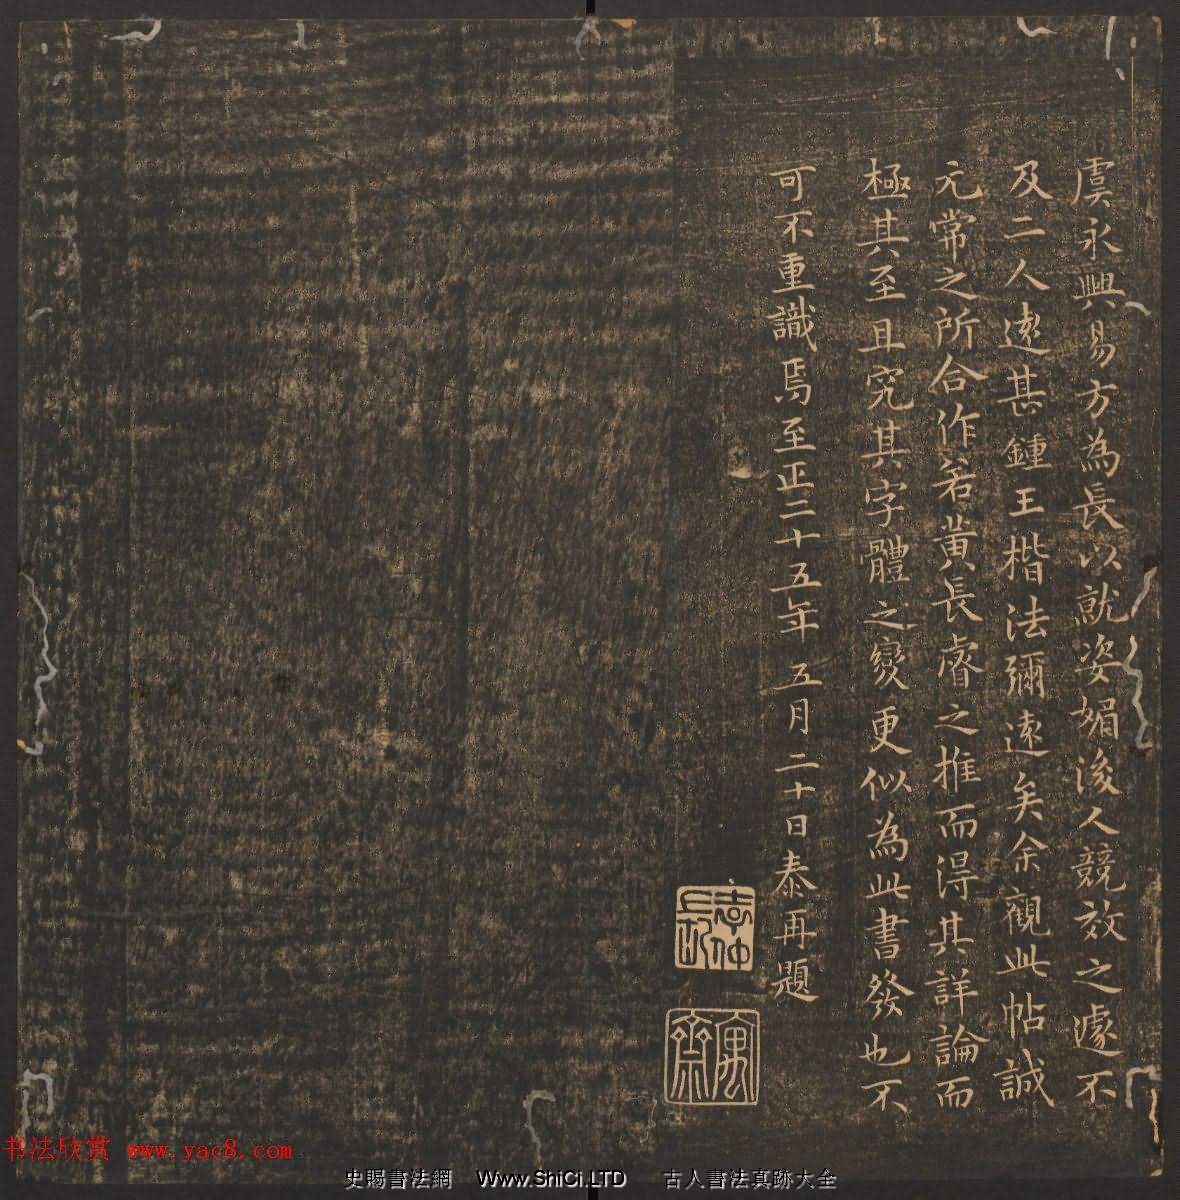 虞永興易方為長以就姿媚後人競效之遽不
及二人遠甚鍾王楷法彌遠矣余觀此帖誠
元常之所合作若黃長睿之推而得其詳論而
極其至且究其字體之變更似為此書發也不
可不重識焉至正二十五年五月二十日泰再題
书法欣赏 www.yac8.com
史賜書法網 Www.ShiCi.LTD 古人書法真跡大全